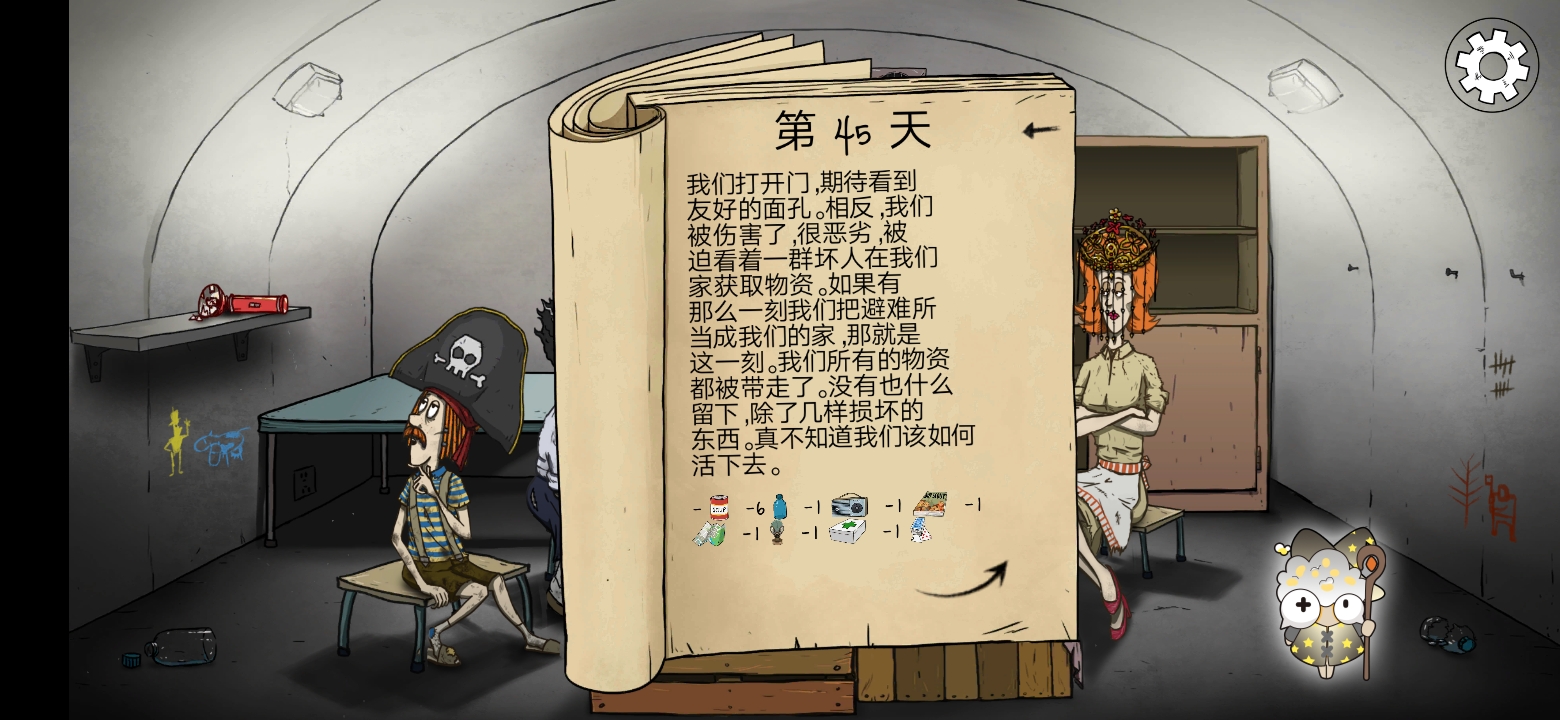 第 45 天
我们打开门,期待看到
友好的面孔。相反,我们
被伤害了,很恶劣,被
迫看着一群坏人在我们
家获取物资。如果有
那么一刻我们把避难所
当成我们的家,那就是
这一刻。我们所有的物资
都被带走了。没有也什么
留下,除了几样损坏的
东西。真不知道我们该如何
活下去。
- SOUP -6 -1 -1 -1
-1 -1 -1